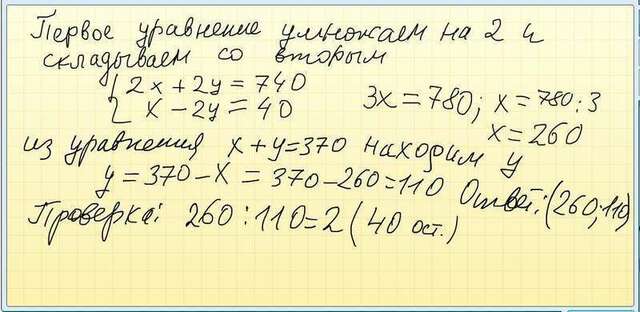 Первое уравнение умножаем на 2 и
складываем со вторым
2x + 2y = 740
x - 2y = 40
3x = 780; x = 780:3
x = 260
из уравнения x + y = 370 находим y
y = 370 - x = 370 - 260 = 110 Ответ: (260; 110)
Проверка: 260 : 110 = 2 (40 ост.)